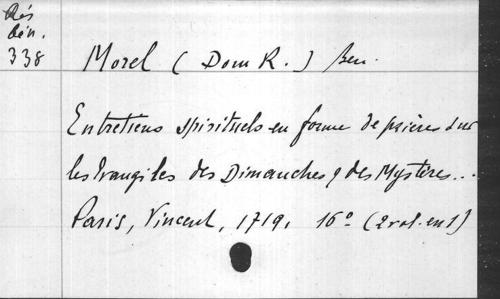 Rés
bén.
338
Morel (Dom R.) Ben.
Entretiens spirituels en forme de prières sur
les Evangiles des Dimanches & des Mystères...
Paris, Vincent, 1719, 16° (2 vol. en 1)